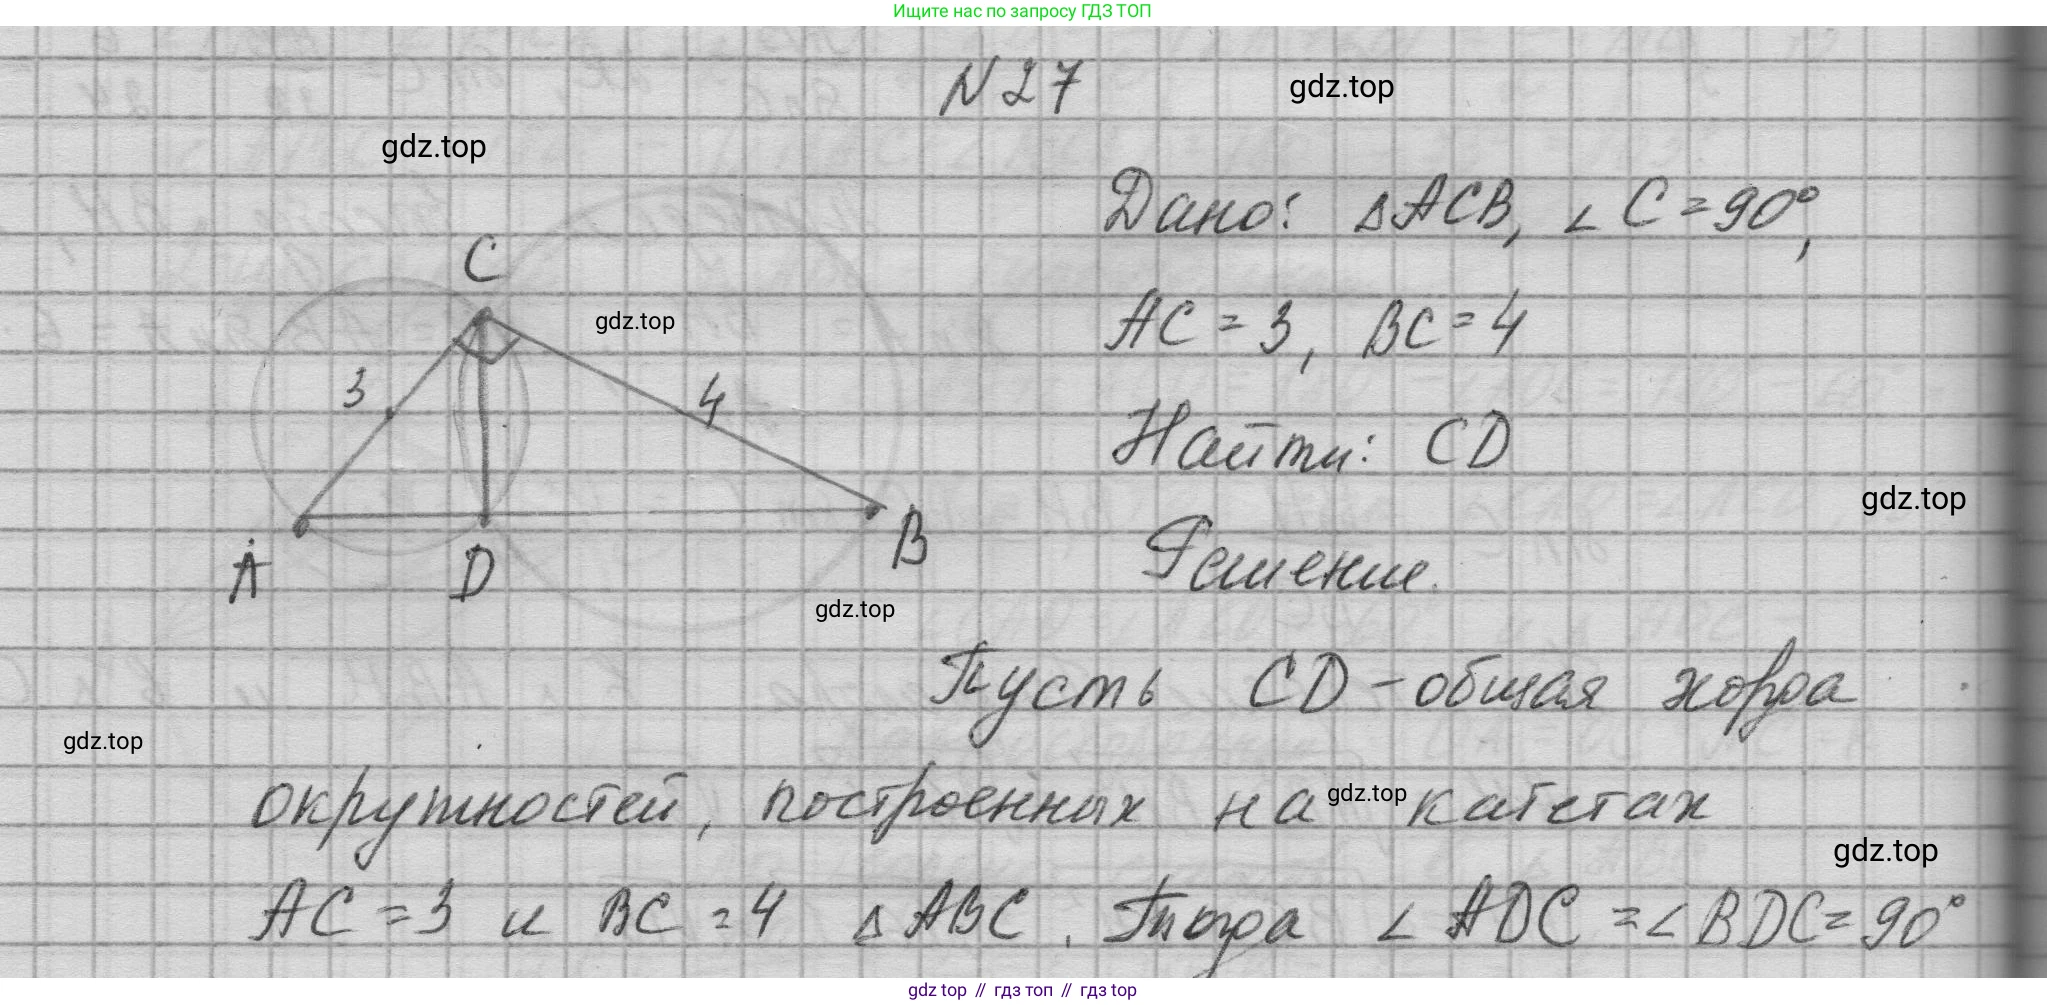 Ищите нас по запросу ГДЗ ТОП
N27
gdz.top
gdz.top
Дано: △ACB, ∠C=90°,
C
gdz.top
AC=3, BC=4
3
4
Найти: CD
gdz.top
A
D
B
Решение.
gdz.top
Пусть CD-общая хорда
gdz.top
окружностей, построенных на катетах
gdz.top
gdz.top
AC=3 и BC=4 △ABC. Тогда ∠ADC=∠BDC=90°
gdz top // гдз топ // gdz top